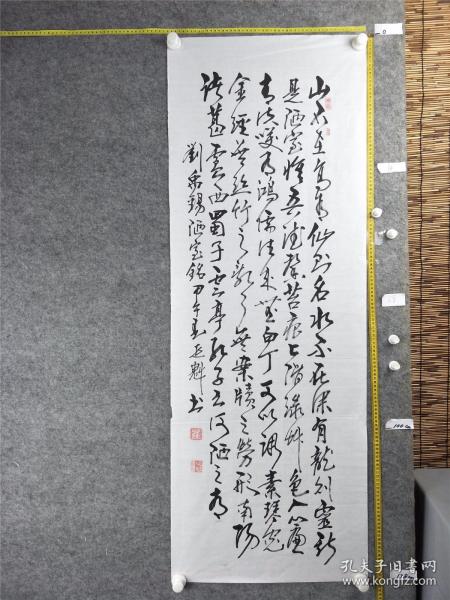 山不在高有仙則名水不在深有龍則靈斯
是陋室惟吾德馨苔痕上階綠草色入簾
青談笑有鴻儒往來無白丁可以調素琴閱
金經無絲竹之亂耳無案牘之勞形南陽
諸葛廬西蜀子云亭孔子云何陋之有
劉禹錫陋室銘甲午春延魁书
孔夫子旧书网
www.kongfz.com